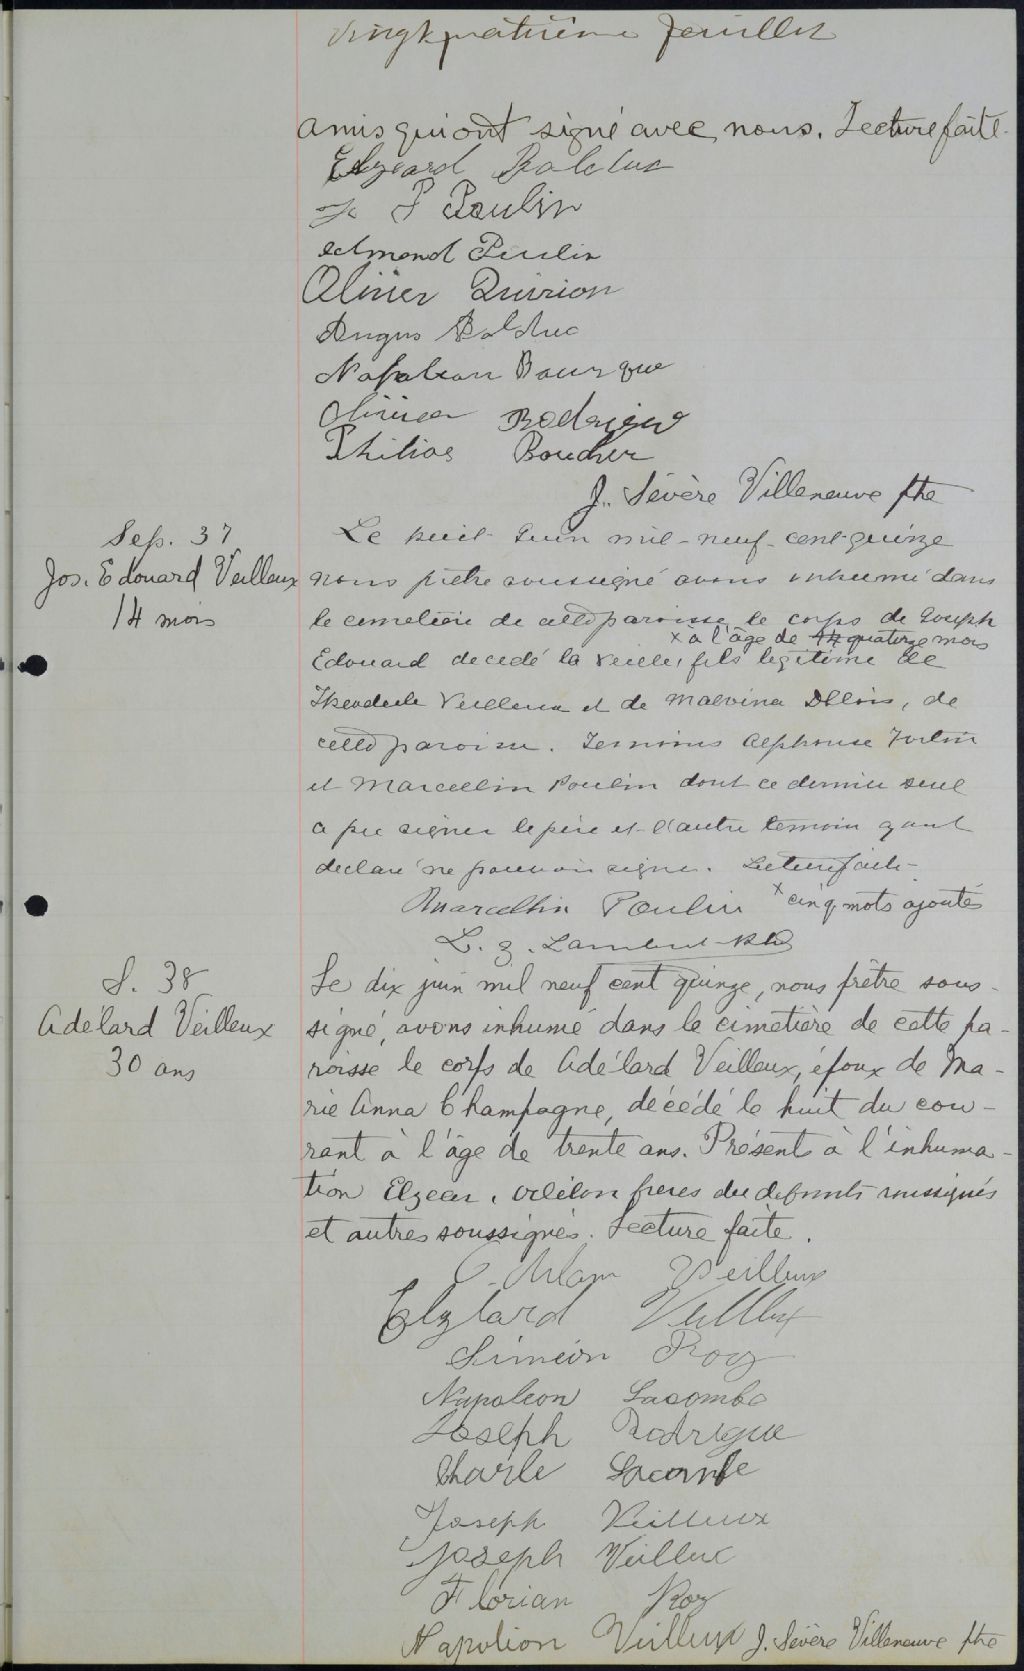 vingtquatrième feuillet
amis qui ont signé avec nous. Lecture faite.
Elzeard Bolduc
J P Poulin
edmond Poulin
Olivier Quirion
Angus Bolduc
Napoleon Bourque
Olivier Rodrigue
Philias Boucher
J. Sévère Villeneuve ptre
Sep. 37
Jos. Edouard Veilleux
14 mois
Le huit Juin mil-neuf-cent-quinze
nous prêtre soussigné avons inhumé dans
le cimetière de cette paroisse le corps de Joseph
x à l'âge de 14 quatorze mois
Edouard decedé la veille, fils legitime de
Veilleux et de Malvina , de
cette paroisse. Temoins Alphonse Fortin
et Marcellin Poulin dont ce dernier seul
a pu signer le père et l'autre temoin ayant
declaré ne pouvoir signer. Lecture faite.
Marcellin Poulin x cinq mots ajoutés
L. Z. Lambert ptre
S. 38
Adélard Veilleux
30 ans
Le dix juin mil neuf cent quinze, nous prêtre sous-
signé, avons inhumé dans le cimetière de cette pa-
roisse le corps de Adélard Veilleux, époux de Ma-
rie Anna Champagne, décédé le huit du cou-
rant à l'âge de trente ans. Présents à l'inhuma-
tion Elzear, freres du defunt soussignés
et autres soussignés. Lecture faite.
Veilleux
Elzéard Veilleux
Siméon Roy
Napoleon Lacombe
Joseph Rodrigue
Charle Lacombe
Joseph Veilleux
Joseph Veilleux
Florian Roy
Napolion Veilleux J. Sévère Villeneuve ptre